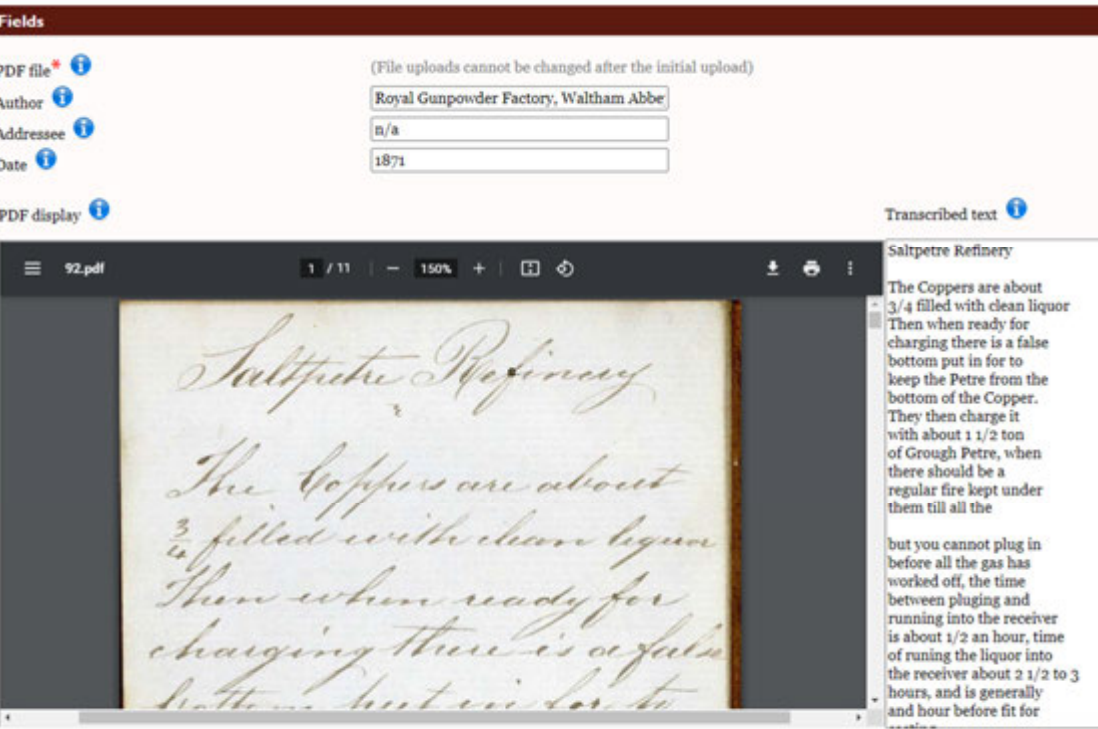 Fields
PDF file*
(File uploads cannot be changed after the initial upload)
Author
Royal Gunpowder Factory, Waltham Abbe
Addressee
n/a
Date
1871
PDF display
Transcribed text
92.pdf
1 / 11
150%
Saltpetre Refinery
The Coppers are about
3/4 filled with clean liquor
Then when ready for
charging there is a false
bottom put in for to
Saltpetre Refinery
The Coppers are about
3/4 filled with clean liquor
Then when ready for
charging there is a false
bottom put in for to
keep the Petre from the
bottom of the Copper.
They then charge it
with about 1 1/2 ton
of Grough Petre, when
there should be a
regular fire kept under
them till all the
but you cannot plug in
before all the gas has
worked off, the time
between pluging and
running into the receiver
is about 1/2 an hour, time
of runing the liquor into
the receiver about 2 1/2 to 3
hours, and is generally
and hour before fit for